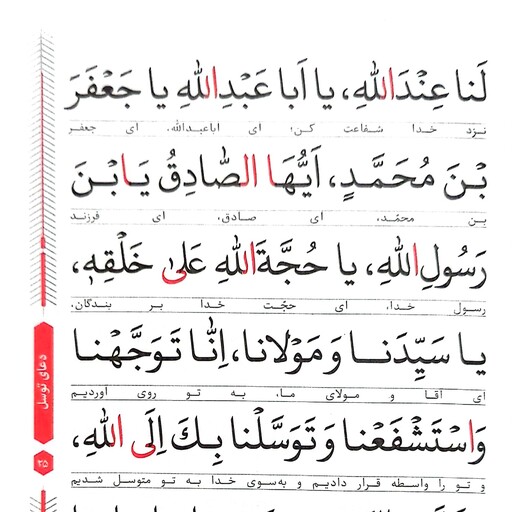 لَنا عِنْدَاللهِ، يا اَبا عَبْدِاللهِ يا جَعْفَرَ
نزد خدا شفاعت کن؛ ای اباعبدالله، ای جعفر
بْنَ مُحَمَّدٍ، اَيُّهَا الصّادِقُ يَابْنَ
بن محمّد، ای صادق، ای فرزند
رَسُولِ اللهِ، يا حُجَّةَاللهِ عَلىٰ خَلْقِهٖ،
رسول خدا، ای حجّت خدا بر بندگان.
يا سَيِّدَنا وَ مَوْلانا، اِنّا تَوَجَّهْنا
ای آقا و مولای ما، به تو روی آوردیم
وَاسْتَشْفَعْنا وَ تَوَسَّلْنا بِكَ اِلَى اللهِ،
و تو را واسطه قرار دادیم و به‌سوی خدا به تو متوسل شدیم
دعای توسل
۳۵